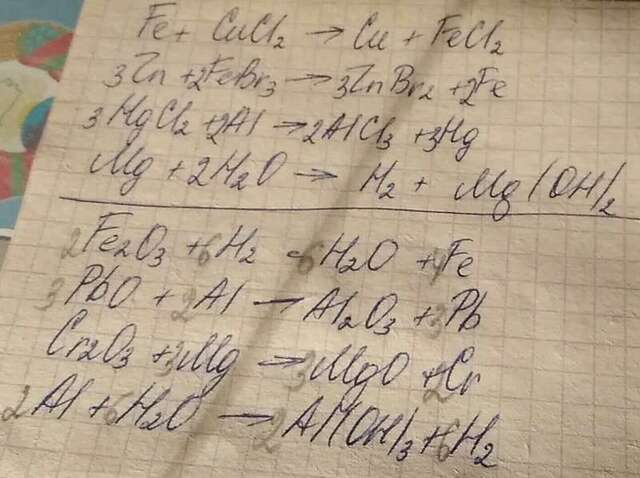 Fe + CuCl2 → Cu + FeCl2
3Zn + 2FeBr3 → 3ZnBr2 + 2Fe
3HgCl2 + 2Al → 2AlCl3 + 3Hg
Mg + 2H2O → H2 + Mg(OH)2
2Fe2O3 + 6H2 - 6H2O + 4Fe
3PbO + 2Al → Al2O3 + 3Pb
Cr2O3 + 3Mg → 3MgO + 2Cr
2Al + 6H2O → 2Al(OH)3 + 6H2